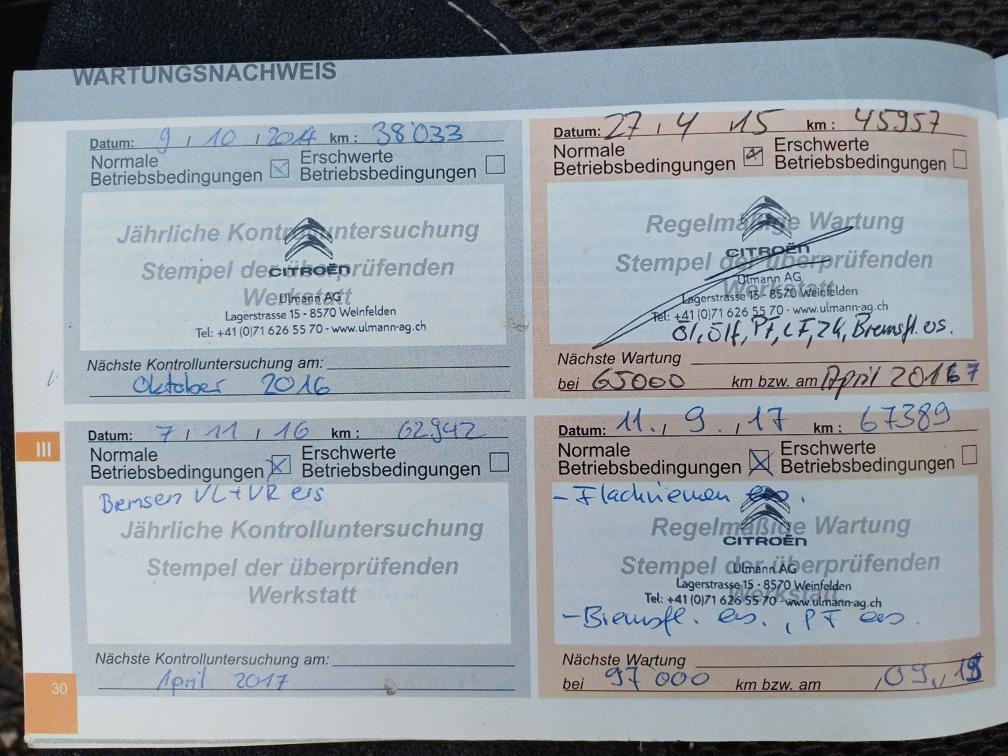 WARTUNGSNACHWEIS
Datum: 9 , 10 , 2014 km : 38'033
Normale
Betriebsbedingungen
Erschwerte
Betriebsbedingungen
Jährliche Kontrolluntersuchung
Stempel der überprüfenden
Werkstatt
CITROËN
Ulmann AG
Lagerstrasse 15 - 8570 Weinfelden
Tel: +41 (0)71 626 55 70 - www.ulmann-ag.ch
Nächste Kontrolluntersuchung am:
Oktober 2016
Datum: 27 , 4 , 15 km : 45957
Normale
Betriebsbedingungen
Erschwerte
Betriebsbedingungen
Regelmäßige Wartung
Stempel der überprüfenden
Werkstatt
CITROËN
Ulmann AG
Lagerstrasse 15 - 8570 Weinfelden
Tel: +41 (0)71 626 55 70 - www.ulmann-ag.ch
Öl, Ölf, PF, LF, ZK, Bremsfl. es.
Nächste Wartung
bei 65000 km bzw. am April 2017
III
Datum: 7 , 11 , 16 km : 62942
Normale
Betriebsbedingungen
Erschwerte
Betriebsbedingungen
Bemsen VL + VR es
Jährliche Kontrolluntersuchung
Stempel der überprüfenden
Werkstatt
Nächste Kontrolluntersuchung am:
April 2017
Datum: 11. , 9. , 17 km : 67389
Normale
Betriebsbedingungen
Erschwerte
Betriebsbedingungen
- Flachriemen es.
Regelmäßige Wartung
Stempel der überprüfenden
Werkstatt
CITROËN
Ulmann AG
Lagerstrasse 15 - 8570 Weinfelden
Tel: +41 (0)71 626 55 70 - www.ulmann-ag.ch
- Bremsfl. es. , PF es.
Nächste Wartung
bei 97000 km bzw. am , 09 ,
30